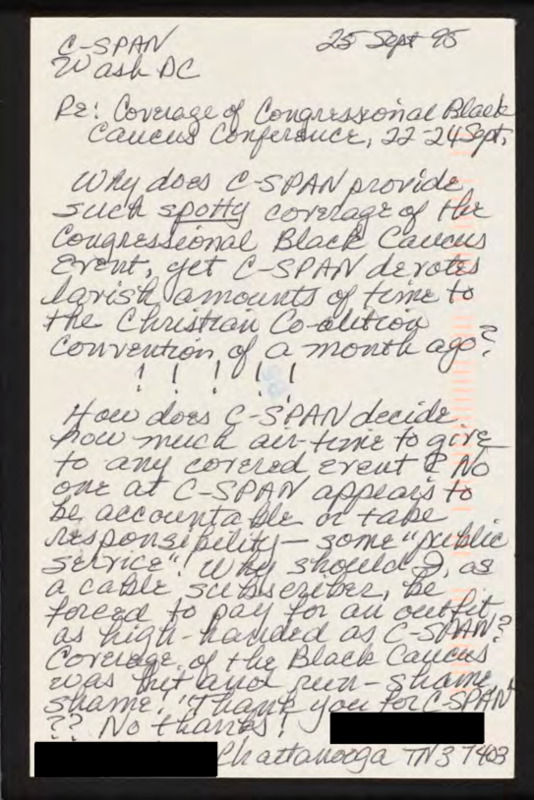 C-SPAN 25 Sept 95
Wash DC
Re: Coverage of Congressional Black
Caucus Conference, 22-24 Sept.
Why does C-SPAN provide
such spotty coverage of the
Congressional Black Caucus
Event, yet C-SPAN devotes
lavish amounts of time to
the Christian Coalition
Convention of a month ago?
! ! ! ! !
How does C-SPAN decide
how much air-time to give
to any covered event? No
one at C-SPAN appears to
be accountable or take
responsibility — some "public
service"! Why should I, as
a cable subscriber, be
forced to pay for an outfit
as high-handed as C-SPAN?
Coverage of the Black Caucus
was hit and run - shame,
shame. "Thank you for C-SPAN"
?? No thanks!
Chattanooga TN 37403